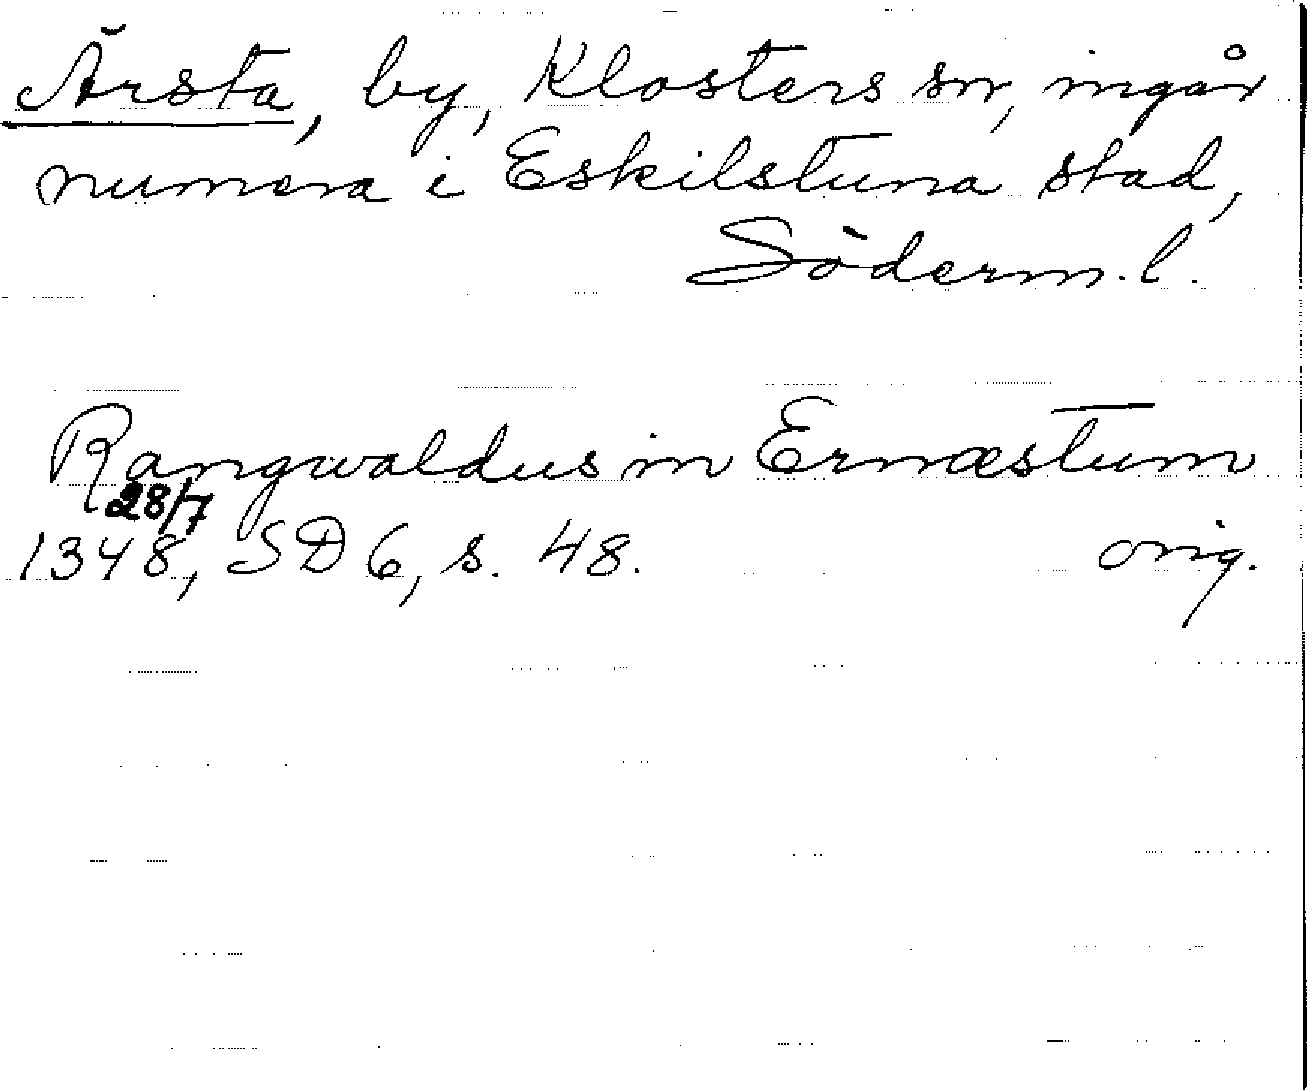 Ärsta, by, Klosters sn, ingår
numera i Eskilstuna stad,
Söderm. l.
Rangwaldus in Ernæstum
28/7
1348, SD 6, s. 48. orig.